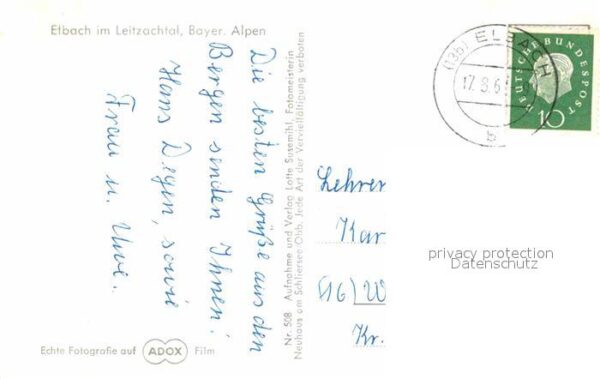 Elbach im Leitzachtal, Bayer. Alpen
Die besten Grüße aus den
Bergen senden Ihnen!
Hans Degen, sowie
Frau u. Uwe.
Nr. 508 Aufnahme und Verlag Lotte Susemihl, Fotomeisterin
Neuhaus am Schliersee Obb. Jede Art der Vervielfältigung verboten
Echte Fotografie auf ADOX Film
(13b) ELBACH
17.8.6
b
DEUTSCHE BUNDESPOST
10
Lehrer
Kar
(16) W
Kr.
privacy protection
Datenschutz